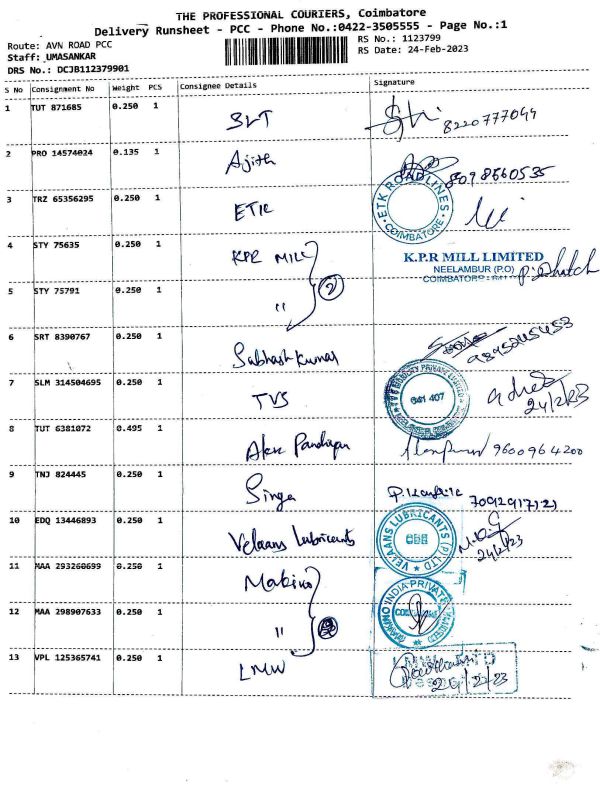 THE PROFESSIONAL COURIERS, Coimbatore
Delivery Runsheet - PCC - Phone No.:0422-3505555 - Page No.:1
Route: AVN ROAD PCC
RS No.: 1123799
Staff: UMASANKAR
RS Date: 24-Feb-2023
DRS No.: DCJB112379901
S No Consignment No Weight PCS Consignee Details Signature
1 TUT 871685 0.250 1 SLT 8220777099
2 PRO 14574024 0.135 1 Ajith 8098560535
3 TRZ 65356295 0.250 1 ETK
ETK ROADLINES COIMBATORE
4 STY 75635 0.250 1 KPR MILL
K.P.R MILL LIMITED
NEELAMBUR (P.O)
COIMBATORE
5 STY 75791 0.250 1 "
2
6 SRT 8390767 0.250 1 Subhash Kumar
7 SLM 314504695 0.250 1 TVS
641 407
24/2/23
8 TUT 6381072 0.495 1 Alex Pandiyan 9600964200
9 TNJ 824445 0.250 1 Singa
10 EDQ 13446893 0.250 1 Velaans Lubricants
VELAANS LUBRICANTS (P) LTD
CBE
24/2/23
11 MAA 293260699 0.250 1 Makino
INDIA PRIVATE
12 MAA 298907633 0.250 1 "
13 VPL 125365741 0.250 1 LMW